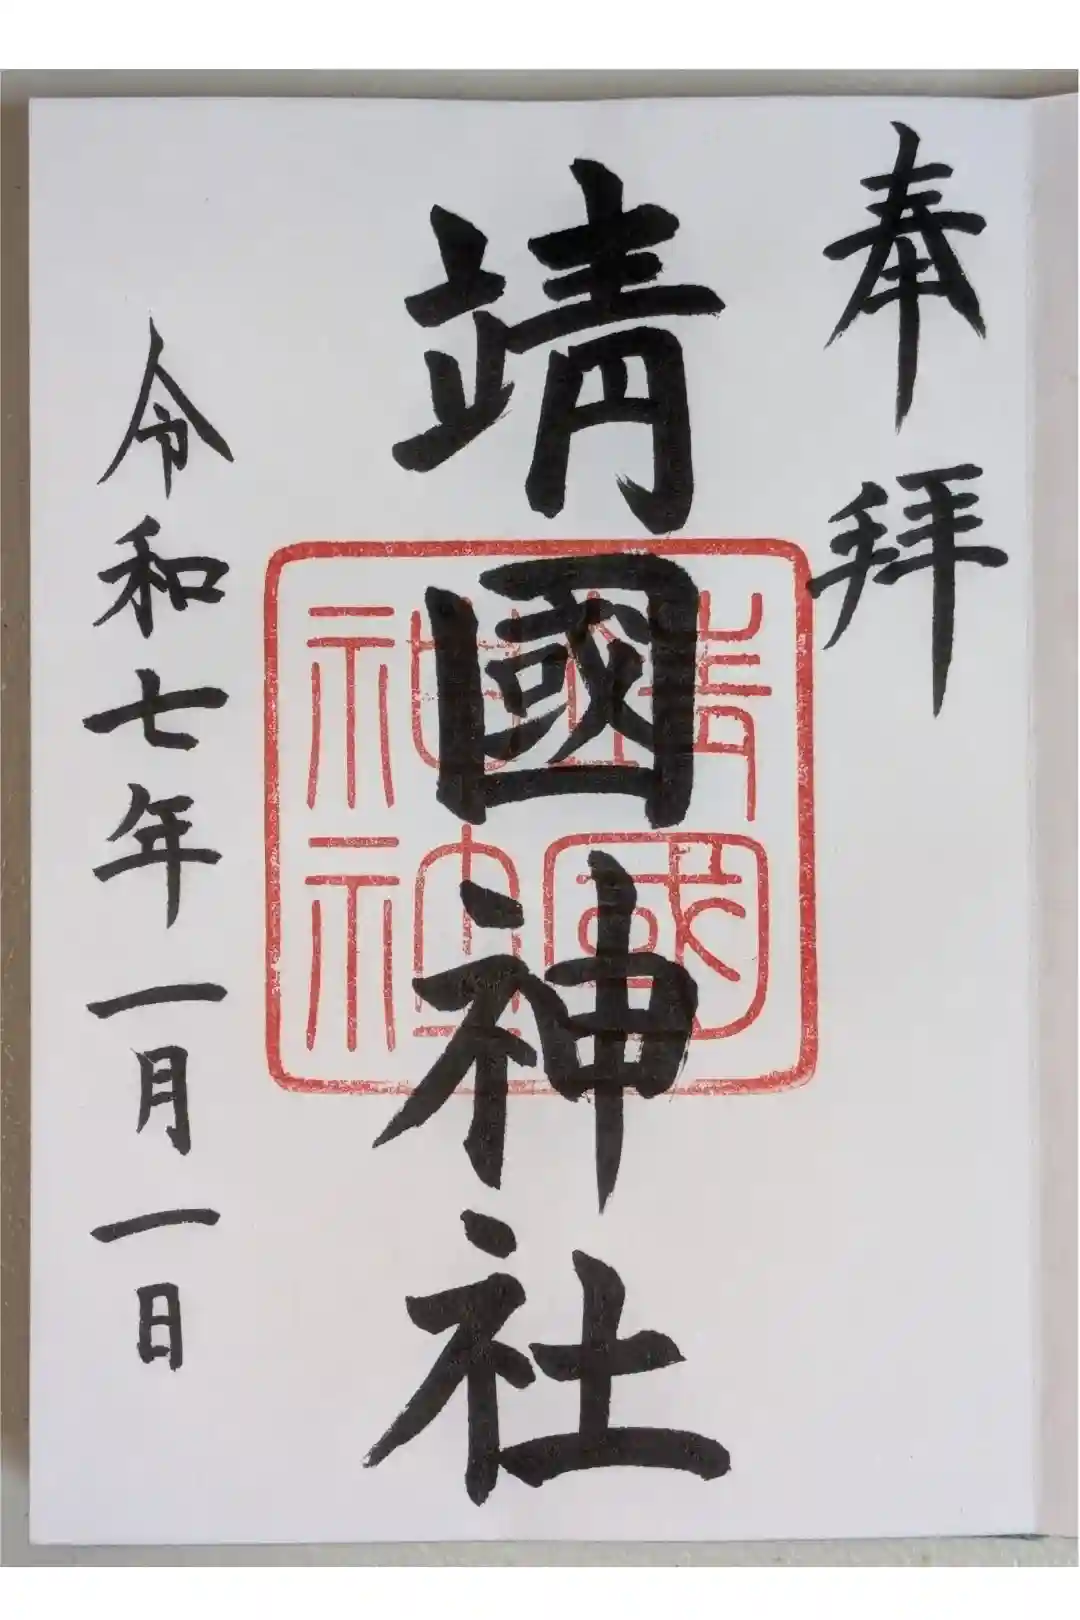 奉拝
靖國神社
靖國神社
令和七年一月一日